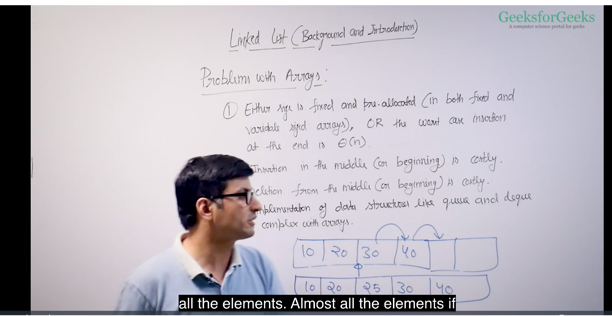 GeeksforGeeks
A computer science portal for geeks
Linked List (Background and Introduction)
Problems with Arrays:
① Either size is fixed and pre-allocated (in both fixed and
variable sized arrays), OR the worst case insertion
at the end is Θ(n).
Insertion in the middle (or beginning) is costly.
Deletion from the middle (or beginning) is costly.
Implementation of data structures like queue and deque
complex with arrays.
10 20 30 40
10 20 25 30 40
all the elements. Almost all the elements if